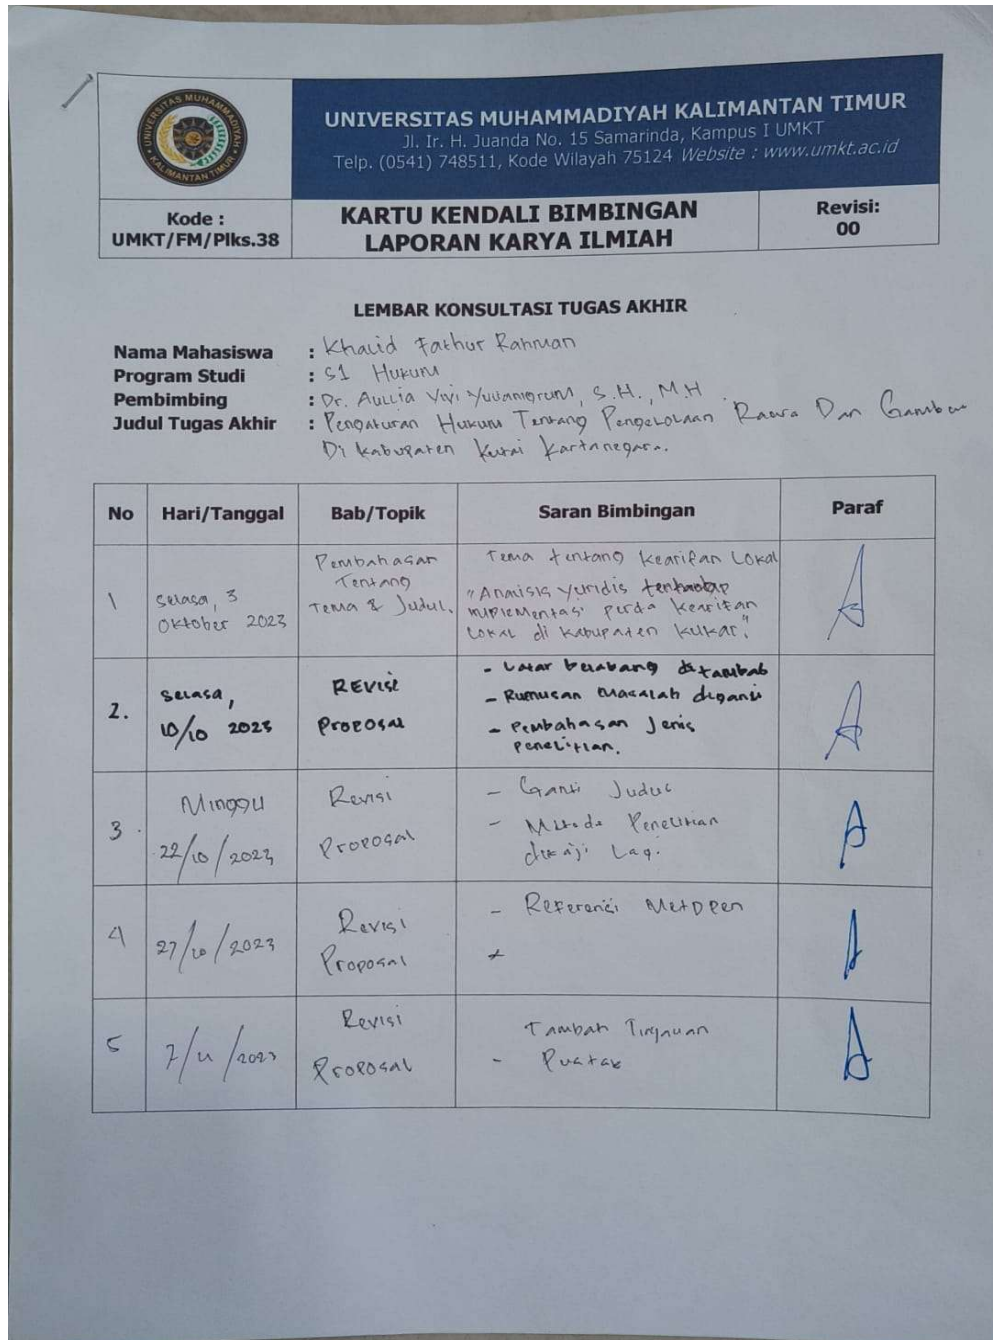 UNIVERSITAS MUHAMMADIYAH
KALIMANTAN TIMUR
UNIVERSITAS MUHAMMADIYAH KALIMANTAN TIMUR
Jl. Ir. H. Juanda No. 15 Samarinda, Kampus I UMKT
Telp. (0541) 748511, Kode Wilayah 75124 Website : www.umkt.ac.id
Kode :
UMKT/FM/Plks.38
KARTU KENDALI BIMBINGAN
LAPORAN KARYA ILMIAH
Revisi:
00
LEMBAR KONSULTASI TUGAS AKHIR
Nama Mahasiswa : Khalid Fathur Rahman
Program Studi : S1 Hukum
Pembimbing : Dr. Aullia Vivi Yulianingrum, S.H., M.H
Judul Tugas Akhir : Pengaturan Hukum Tentang Pengelolaan Rawa Dan Gambut
Di Kabupaten Kutai Kartanegara.
No Hari/Tanggal Bab/Topik Saran Bimbingan Paraf
1
Selasa, 3
Oktober 2023
Pembahasan
Tentang
Tema & Judul.
Tema tentang Kearifan Lokal
"Analisis Yuridis terhadap
implementasi perda kearifan
Lokal di Kabupaten Kukar."
2.
Selasa,
10/10 2023
Revisi
Proposal
- Latar belakang ditambah
- Rumusan Masalah diganti
- Pembahasan Jenis
Penelitian.
3.
Minggu
22/10/2023
Revisi
Proposal
- Ganti Judul
- Metode Penelitian
dikaji Lagi.
4
27/10/2023
Revisi
Proposal
- Referensi Metopen
5
7/11/2023
Revisi
Proposal
Tambah Tinjauan
-